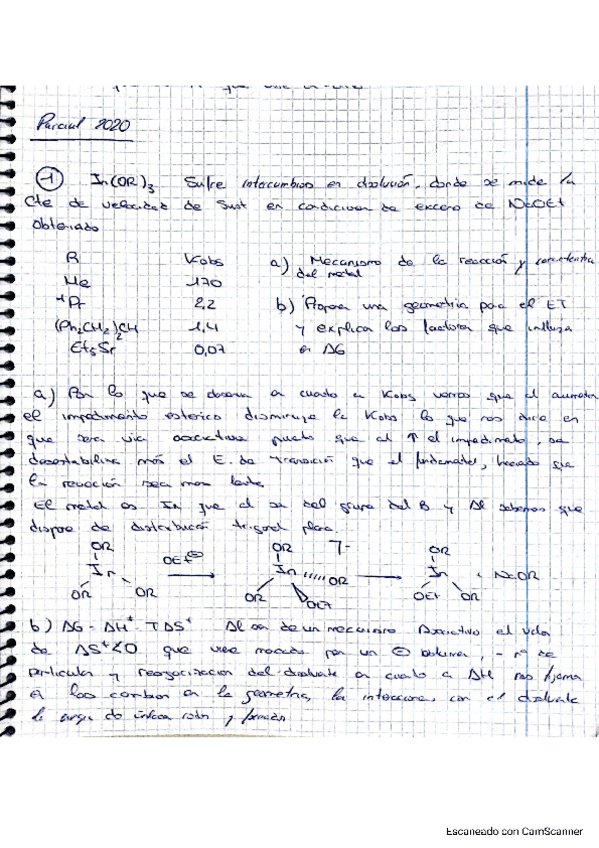 Parcial 2020
1 In(OR)3 Sufre intercambios en disolución, donde se mide la
cte de velocidad de Sust en condiciones de exceso de NaOEt
obteniendo
R Kobs a) Mecanismo de la reacción y
del metal
Me 170
iPr 2,2 b) Propon una geometría para el ET
(Ph2CH2)2CH 1,4 y explica los factores que influyen
Et3Si 0,07 en ΔG
a) Por lo que se observa en cuanto a Kobs vemos que al aumentar
el impedimento esterico disminuye la Kobs lo que nos dice en
que sera via asociativa puesto que al ↑ el impedimento, se
desestabiliza más el E. de transición que el fundamental, haciendo que
la reacción sea mas lenta.
El metal es In que al ser del grupo del B y Al sabemos que
dispone de distribución trigonal plana.
OR OR 7- OR
In OEt⊖ In OR In + NaOR
OR OR OR OEt OEt OR
b) ΔG = ΔH‡ - TΔS‡ Al ser de un mecanismo Asociativo el valor
de ΔS‡<0 que viene marcado por un ⊖ , - nº de
particulas y reorganizacion del disolvente en cuanto a ΔH nos fijamos
en los cambios en la geometria, las interacciones con el disolvente
la energia de enlace y
Escaneado con CamScanner